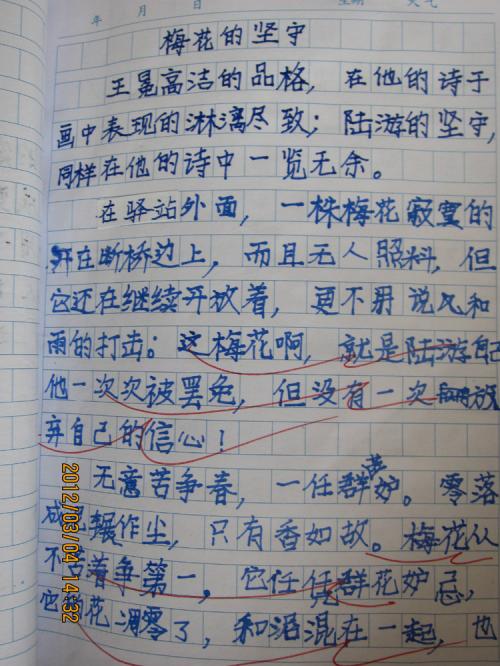 年 月 日
梅花的坚守
王冕高洁的品格，在他的诗于
画中表现的淋漓尽致；陆游的坚守，
同样在他的诗中一览无余。
在驿站外面，一株梅花寂寞的
开在断桥边上，而且无人照料，但
它还在继续开放着，更不用说风和
雨的打击。这梅花啊，就是陆游
他一次次被罢免，但没有一次放
弃自己的信心！
无意苦争春，一任群芳妒。零落
成 碾作尘，只有香如故。梅花从
不 着争第一，它任凭群花妒忌，
它 花凋零了，和泥混在一起，也
2012/03/04 14:32